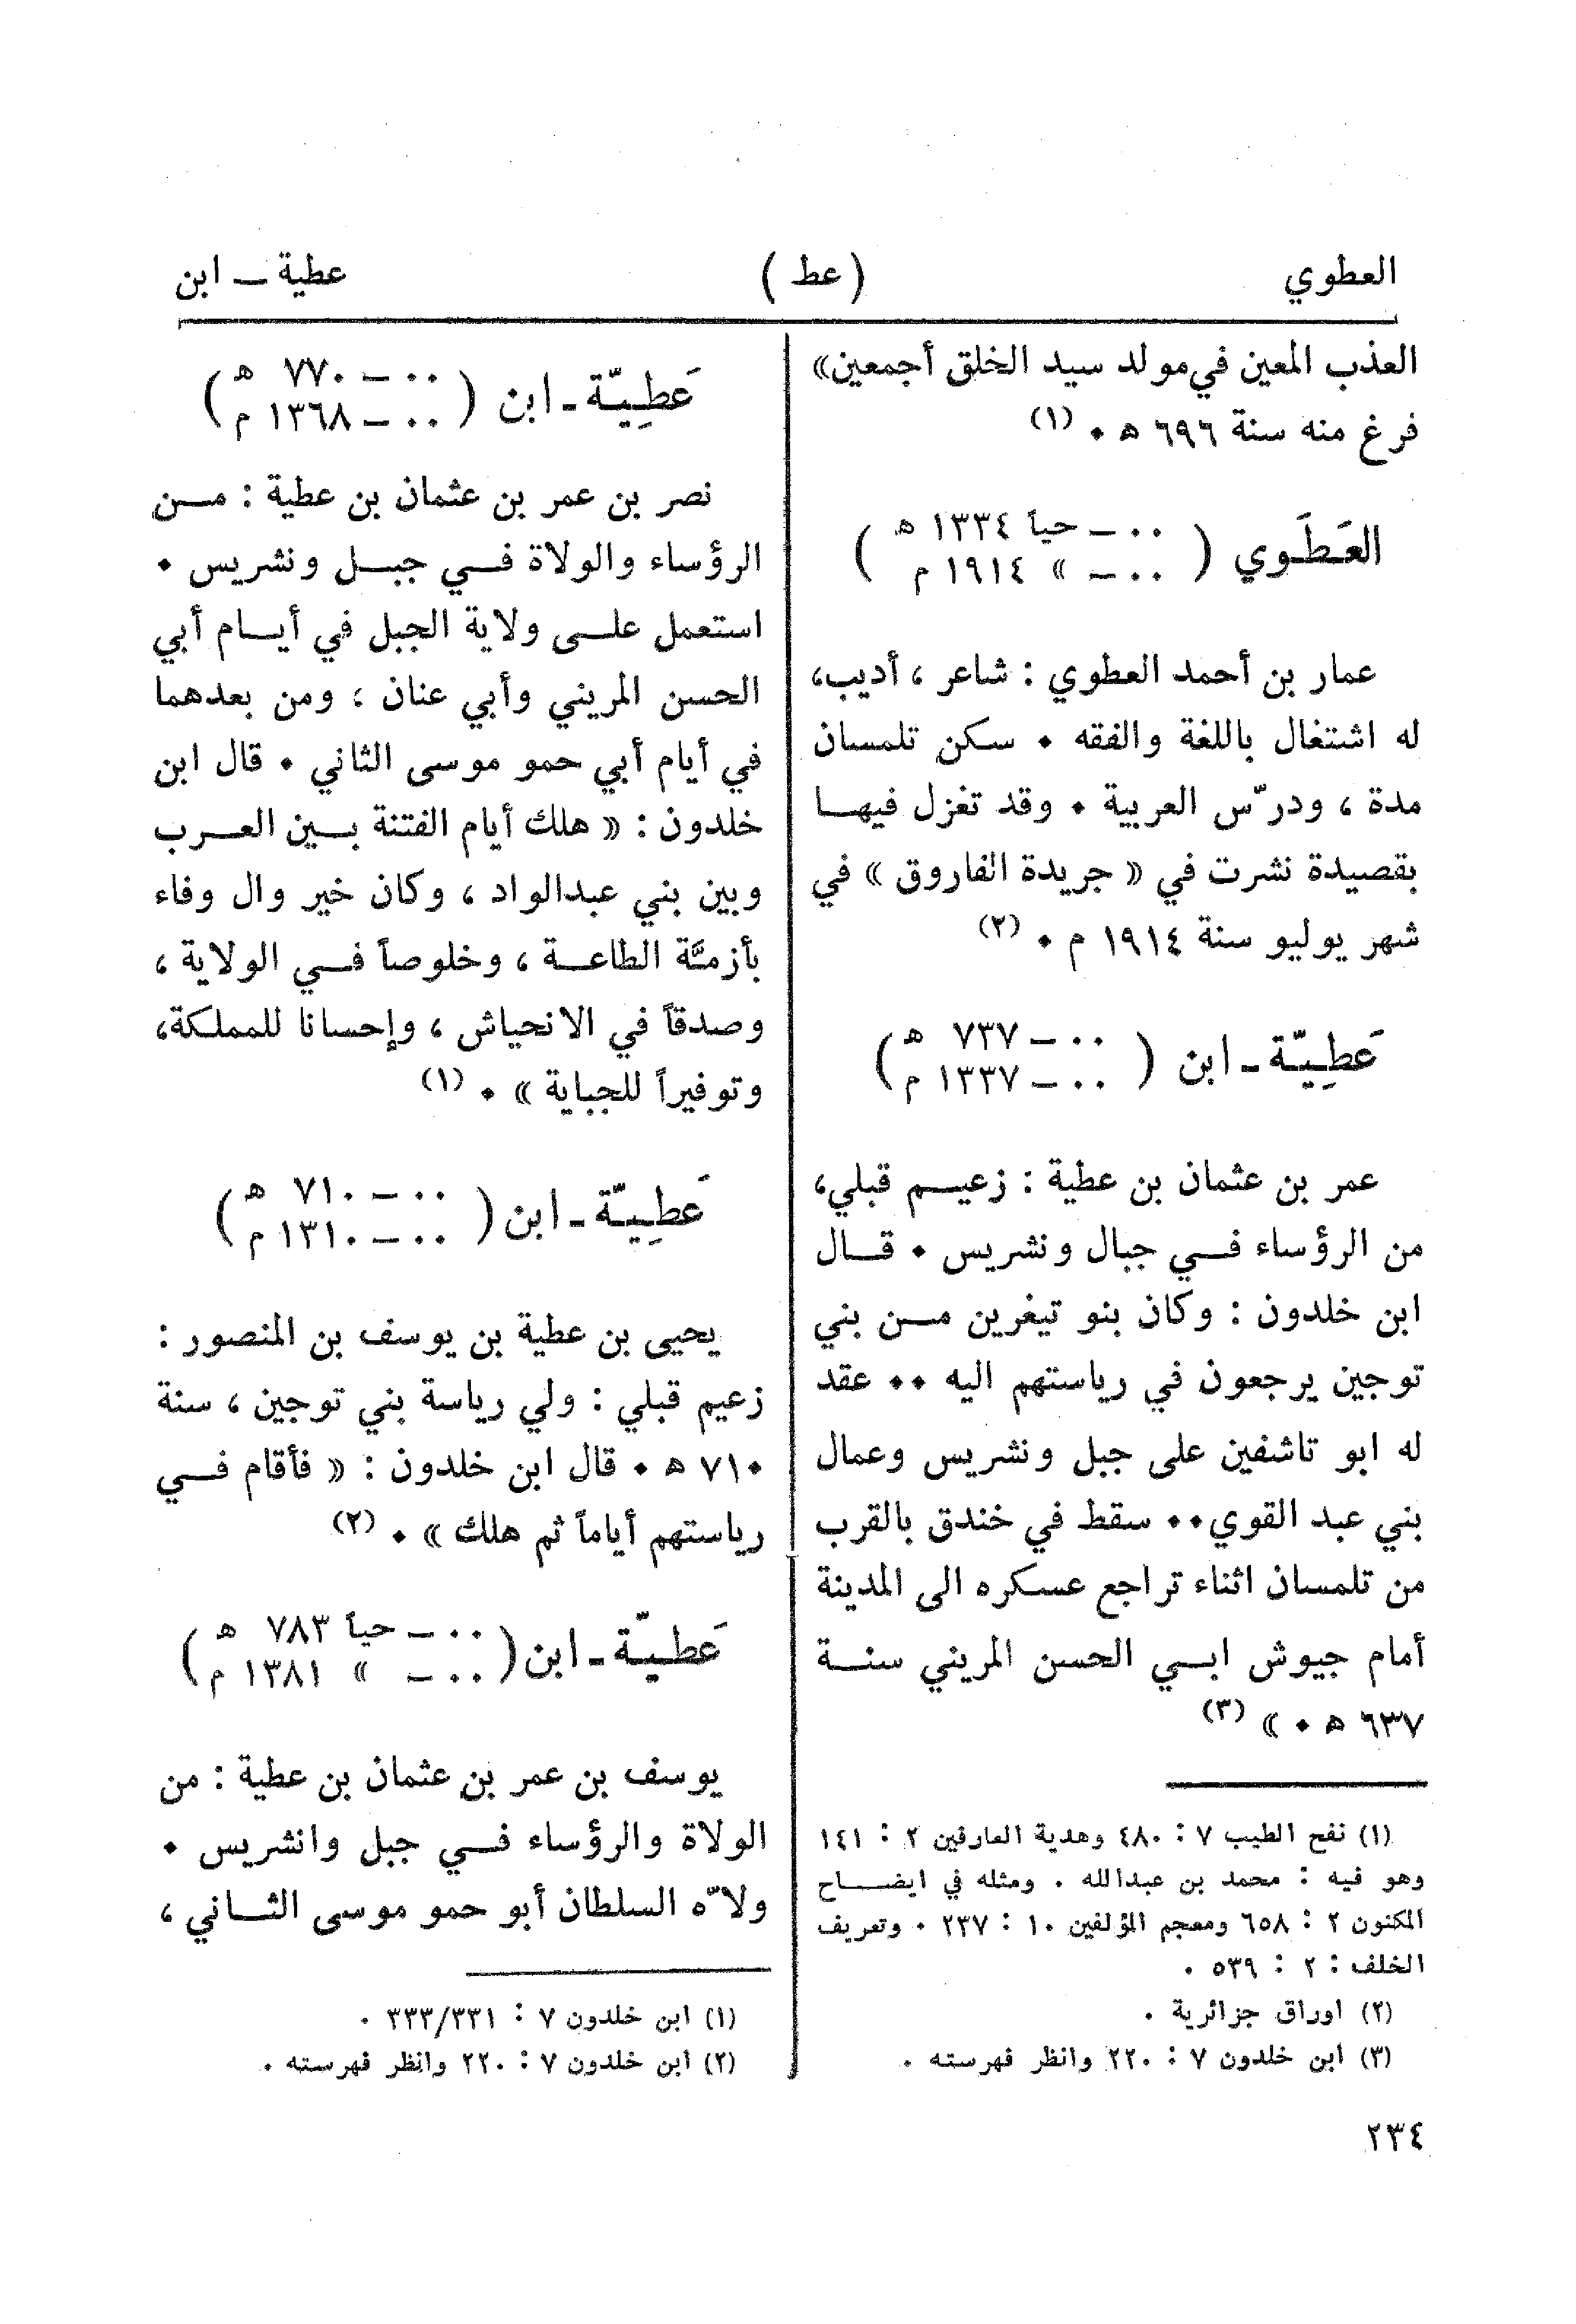 العطوي
( عط )
عطية ــ ابن
العذب المعين في مولد سيد الخلق أجمعين»
فرغ منه سنة ٦٩٦ هـ . (١)
العَطَـوي ( ٠٠ ــ حياً ١٣٣٤ هـ
٠٠ ــ » ١٩١٤ م )
عمار بن أحمد العطوي : شاعر ، أديب،
له اشتغال باللغة والفقه . سكن تلمسان
مدة ، ودرّس العربية . وقد تغزل فيهـا
بقصيدة نشرت في « جريدة الفاروق » في
شهر يوليو سنة ١٩١٤ م . (٢)
عَطِيـّة ـ ابن ( ٠٠ ــ ٧٣٧ هـ
٠٠ ــ ١٣٣٧ م )
عمر بن عثمان بن عطية : زعيـم قبلي،
من الرؤساء فـي جبال ونشريس . قـال
ابن خلدون : وكان بنو تيغرين مـن بني
توجين يرجعون في رياستهم اليه .. عقد
له ابو تاشفين على جبل ونشريس وعمال
بني عبد القوي.. سقط في خندق بالقرب
من تلمسان اثناء تراجع عسكره الى المدينة
أمام جيوش ابـي الحسن المريني سنـة
٦٣٧ هـ . » (٣)
(١) نفح الطيب ٧ : ٤٨٠ وهدية العارفين ٢ : ١٤١
وهو فيه : محمد بن عبدالله . ومثله في ايضـاح
المكنون ٢ : ٦٥٨ ومعجم المؤلفين ١٠ : ٢٣٧ . وتعريف
الخلف : ٢ : ٥٣٩ .
(٢) اوراق جزائرية .
(٣) ابن خلدون ٧ : ٢٢٠ وانظر فهرسته .
عَطِيـّة ـ ابن ( ٠٠ ــ ٧٧٠ هـ
٠٠ ــ ١٣٦٨ م )
نصر بن عمر بن عثمان بن عطية : مـن
الرؤساء والولاة فـي جبـل ونشريس .
استعمل علـى ولاية الجبل في أيـام أبي
الحسن المريني وأبي عنان ، ومن بعدهما
في أيام أبي حمو موسى الثاني . قال ابن
خلدون : « هلك أيام الفتنة بـين العـرب
وبين بني عبدالواد ، وكان خير وال وفاء
بأزمَّة الطاعـة ، وخلوصاً فـي الولاية ،
وصدقاً في الانحياش ، وإحسانا للمملكة،
وتوفيراً للجباية » . (١)
عَطِيـّة ـ ابن ( ٠٠ ــ ٧١٠ هـ
٠٠ ــ ١٣١٠ م )
يحيى بن عطية بن يوسف بن المنصور :
زعيم قبلي : ولي رياسة بني توجين ، سنة
٧١٠ هـ . قال ابن خلدون : « فأقام فـي
رياستهم أياماً ثم هلك » . (٢)
عَطيـّة ـ ابن ( ٠٠ ــ حياً ٧٨٣ هـ
٠٠ ــ » ١٣٨١ م )
يوسف بن عمر بن عثمان بن عطية : من
الولاة والرؤساء فـي جبل وانشريس .
ولاّه السلطان أبو حمو موسى الثـاني ،
(١) ابن خلدون ٧ : ٣٣٣/٣٣١ .
(٢) ابن خلدون ٧ : ٢٢٠ وانظر فهرسته .
٢٣٤